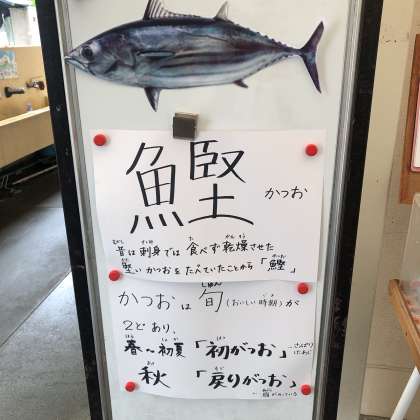 鰹
かつお
昔は刺身では食べず乾燥させた
堅いかつおをたべていたことから「鰹」
かつおは旬(おいしい時期)が
2どあり、
春〜初夏「初がつお」-さっぱり
秋「戻りがつお」-脂がのっている